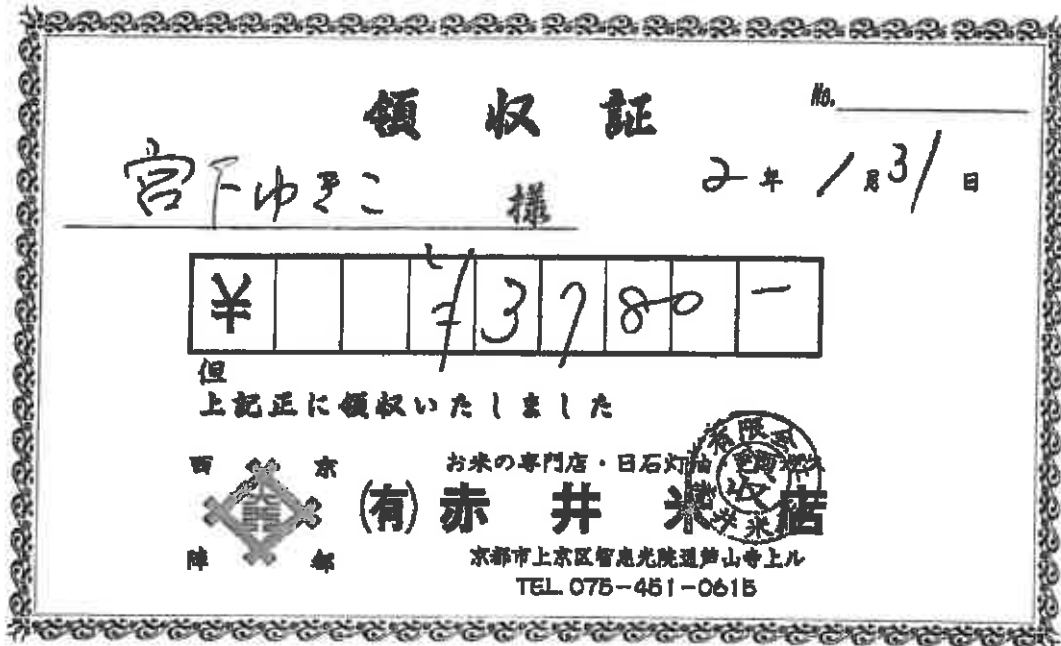 領収証
No.
宮下ゆきこ 様
2年1月31日
¥ 3780-
但
上記正に領収いたしました
西京陣都
お米の専門店・日石灯油・
(有)赤井米店
京都市上京区智恵光院通芦山寺上ル
TEL.075-451-0615